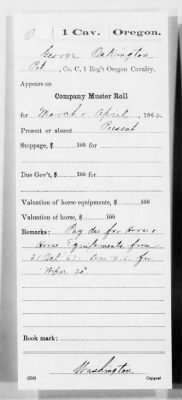 O | 1 Cav. | Oregon.
George Oakington
Pvt, Co. C, 1 Reg't Oregon Cavalry.
Appears on
Company Muster Roll
for March & April, 186
Present or absent Present
Stoppage, $ 100 for
Due Gov't, $ 100 for
Valuation of horse equipments, $ 100
Valuation of horse, $ 100
Remarks: Pay due for Horse &
Horse Equipments from
31 Oct for
Book mark:
Washington
Copyist.